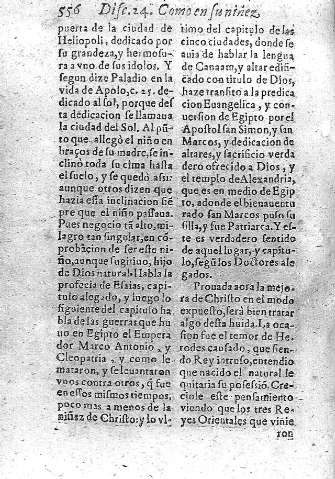 556 Disc. 24. Como en su niñez
puerta de la ciudad de
Heliopoli, dedicado por
su grandeza, y hermosu-
ra a vno de sus idolos. Y
segun dize Paladio en la
vida de Apolo, c. 25. de-
dicado al sol, porque des-
ta dedicacion se llamaua
la ciudad del Sol. Al pũ-
to que allegò el niño en
braços de su madre, se in-
clinò toda su cima hasta
el suelo, y se quedò assi:
aunque otros dizen que
hazia esta inclinacion siẽ
pre que el niño passaua.
Pues negocio tã alto, mi-
lagro tan singular, en cõ-
probacion de ser este ni-
ño, aunque fugitiuo, hijo
de Dios natural. Habla la
profecia de Esaias, capi-
tulo alegado, y luego lo
siguiente del capitulo ha
bla de las guerras que hu
uo en Egipto el Empera-
dor Marco Antonio, y
Cleopatria, y como le
mataron, y se leuantaron
vnos contra otros, q̃ fue
en estos mismos tiempos,
poco mas a menos de la
niñez de Christo: y lo vl-
timo del capitulo de las
cinco ciudades, donde se
auia de hablar la lengua
de Canaam, y altar edifi-
cado con titulo de Dios,
haze transito a la predica
cion Euangelica, y con-
uersion de Egipto por el
Apostol san Simon, y san
Marcos, y dedicacion de
altares, y sacrificio verda
dero ofrecido a Dios, y
el templo de Alexandria,
que es en medio de Egip
to, adonde el bienauentu
rado san Marcos puso su
silla, y fue Patriarca. Y es-
te es verdadero sentido
de aquel lugar, y capitu-
lo, segũ los Doctores ale
gados.
Prouada aora la mejo-
ra de Christo en el modo
expuesto, serà bien tratar
algo desta huida. La oca-
sion fue el temor de He-
rodes causado, que sien-
do Rey intruso, entendio
que nacido el natural le
quitaria su possesiõ. Cre-
ciole este pensamiento
viendo que los tres Re-
yes Orientales que vinie
ron